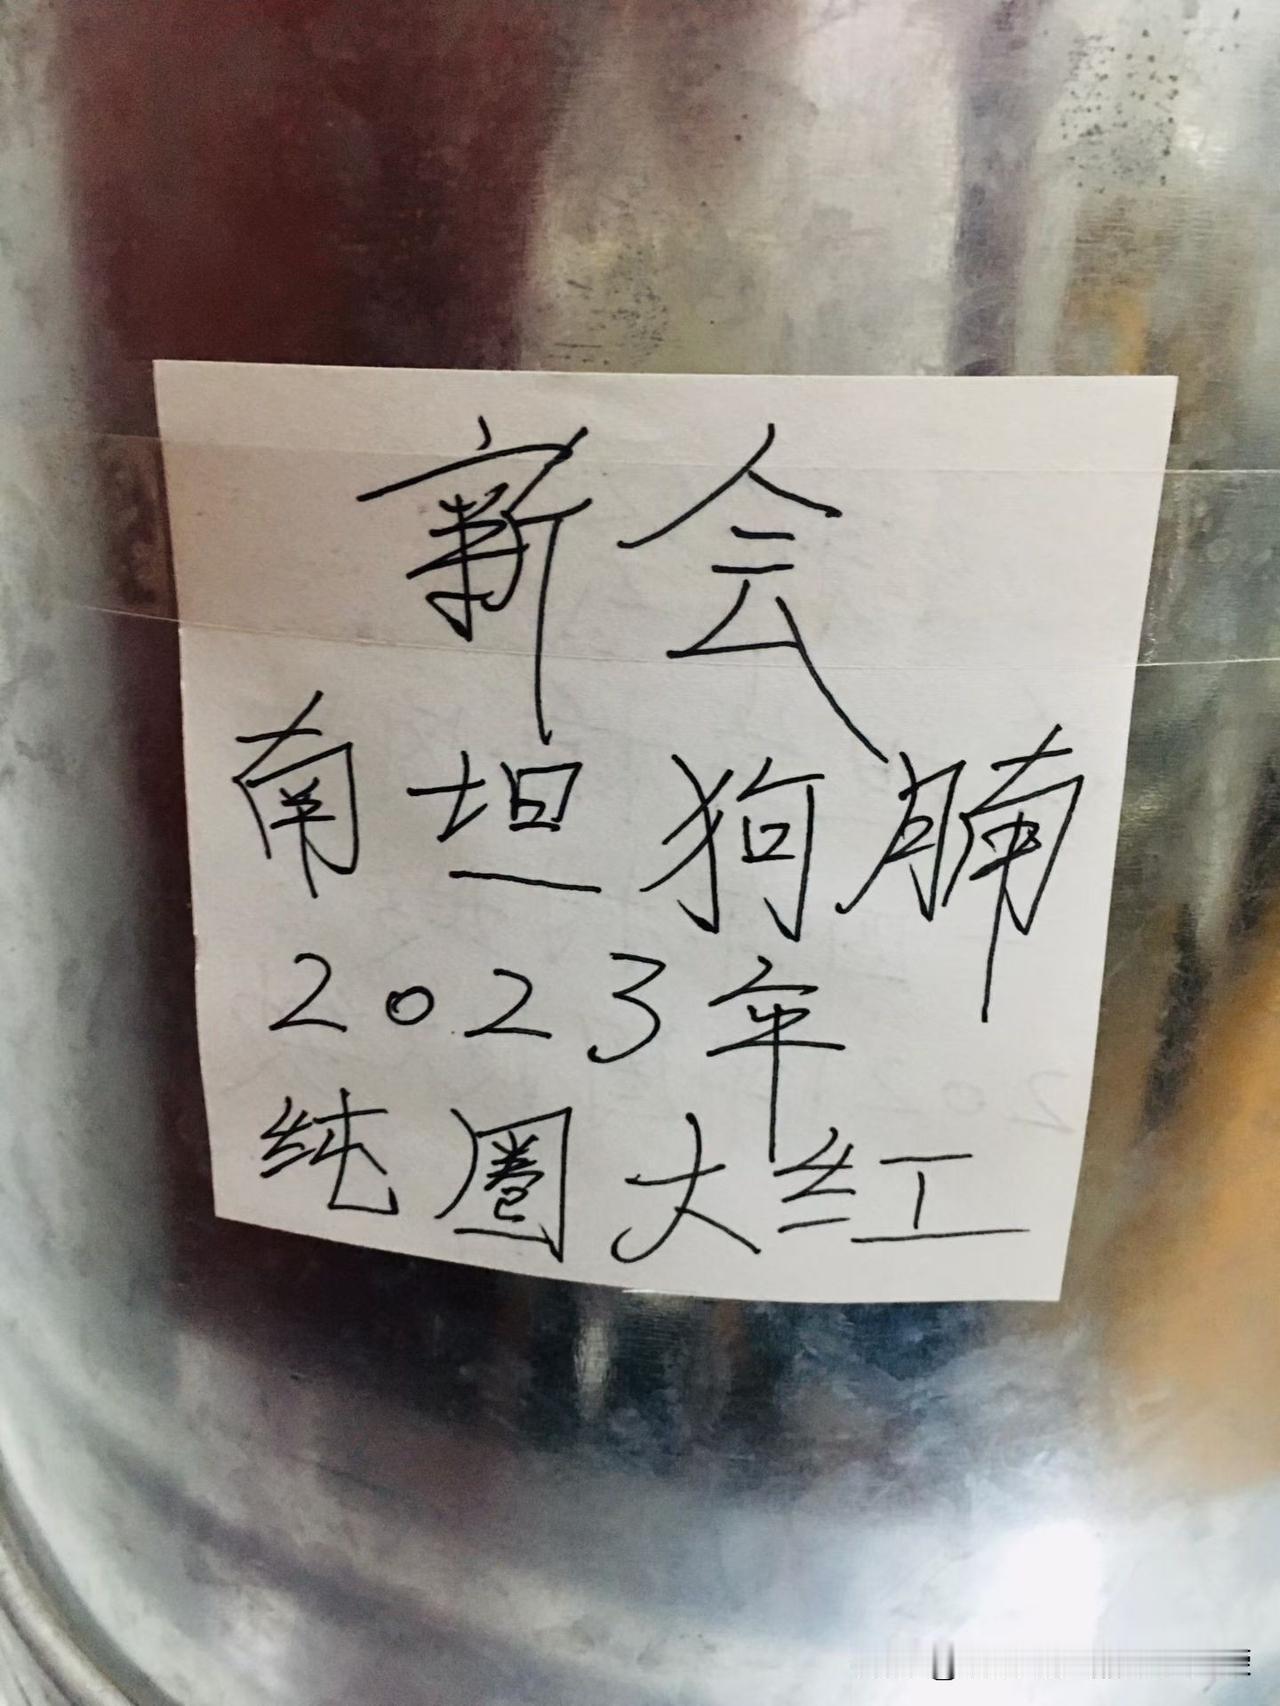 新会
南坦狗腩
2023年
纯圈大红